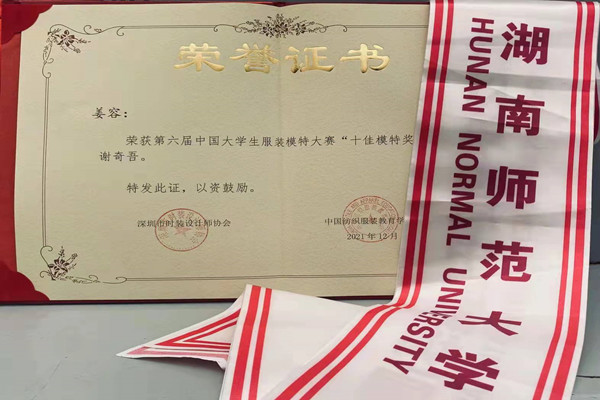 荣誉证书
姜容：
荣获第六届中国大学生服装模特大赛“十佳模特奖
谢奇吾。
特发此证，以资鼓励。
深圳市时装设计师协会
中国纺织服装教育学
2021年12月
湖南师范大学
HUNAN NORMAL UNIVERSITY